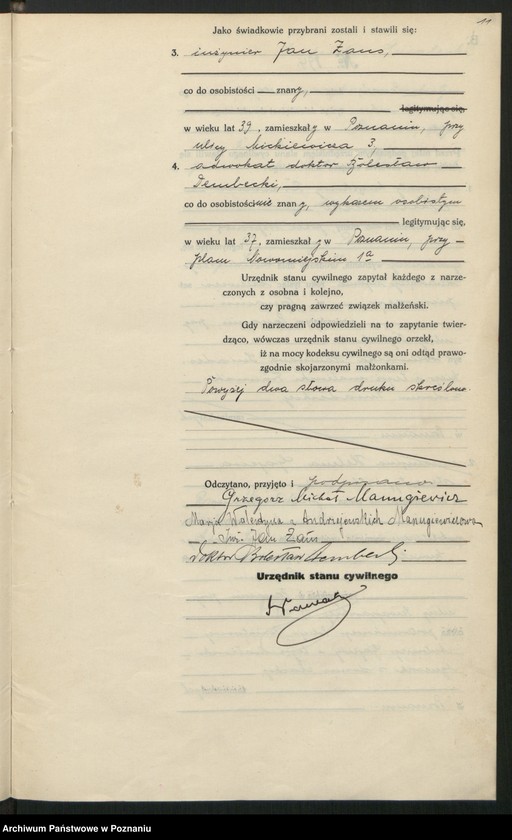 11
Jako świadkowie przybrani zostali i stawili się:
3. inżynier Jan Żaus,
co do osobistości znany,
legitymując się,
w wieku lat 39, zamieszkały w Poznaniu, przy
ulicy Mickiewicza 3,
4. adwokat doktor Bolesław
Dembecki,
co do osobistości nie znany, wykazem osobistym
legitymując się,
w wieku lat 37, zamieszkały w Poznaniu, przy
placu Nowomiejskim 1a
Urzędnik stanu cywilnego zapytał każdego z narze-
czonych z osobna i kolejno,
czy pragną zawrzeć związek małżeński.
Gdy narzeczeni odpowiedzieli na to zapytanie twier-
dząco, wówczas urzędnik stanu cywilnego orzekł,
iż na mocy kodeksu cywilnego są oni odtąd prawo-
zgodnie skojarzonymi małżonkami.
Powyżej dwa słowa druku skreślono.
Odczytano, przyjęto i podpisano.
Grzegorz Michał Manugiewicz
Marja Walentyna z Andrzejewskich Manugiewiczowa
Inż. Jan Żaus
Doktor Bolesław Dembecki
Urzędnik stanu cywilnego
Archiwum Państwowe w Poznaniu